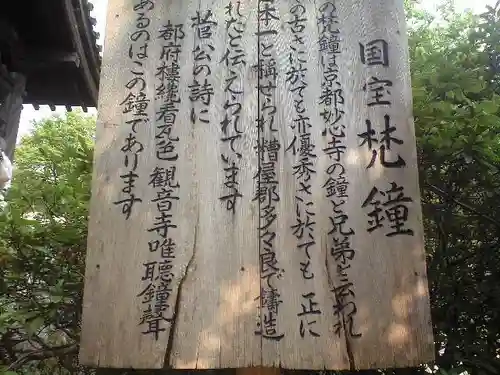 国宝 梵鐘
の梵鐘は京都妙心寺の鐘と兄弟と云われ
の古さに於ても亦優秀さに於ても 正に
本一と称せられ糟屋郡多々良で鋳造
れたと伝えられています
菅公の詩に
都府楼纔看瓦色 観音寺唯聴鐘聲
あるのはこの鐘であります